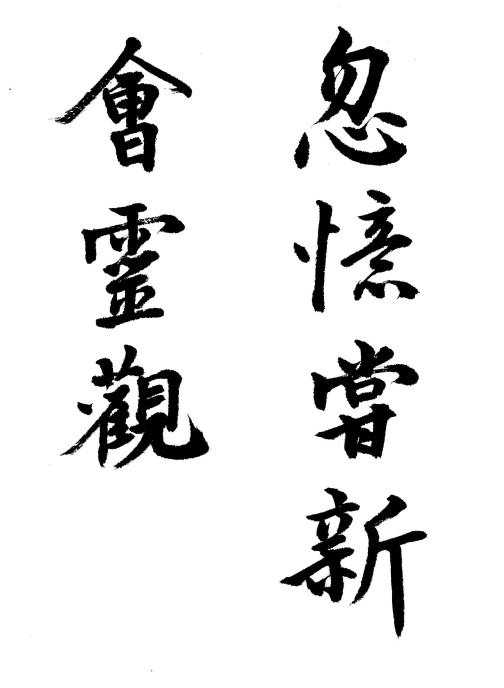 忽憶嘗新
會靈觀